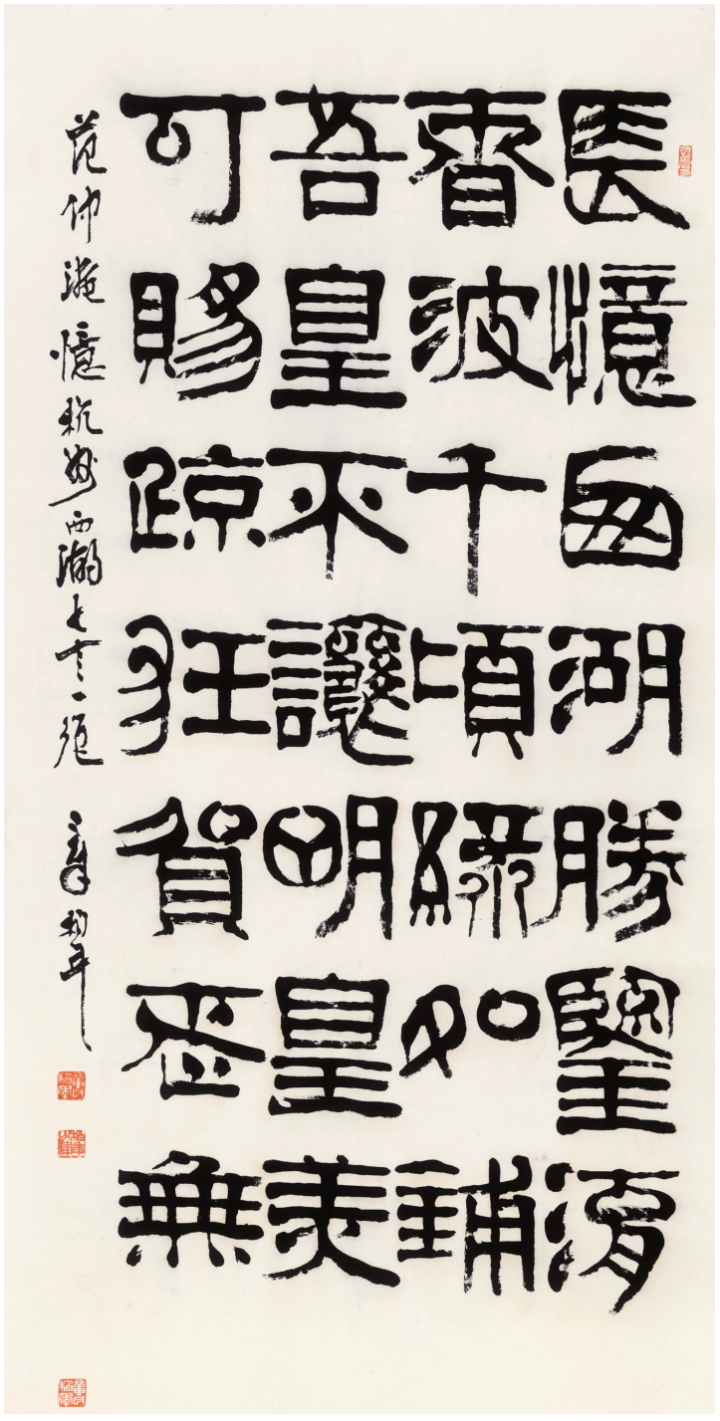 長憶西湖勝鑒湖
春波千頃綠如鋪
吾皇不讓明皇美
可賜疎狂賀老無
范仲淹憶杭州西湖七言一絕 章柏年